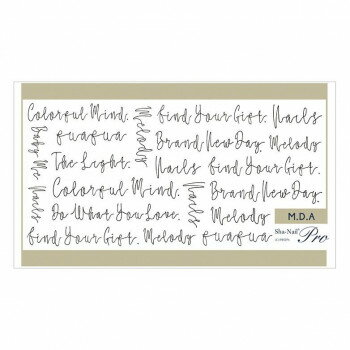 Colorful Mind.
Melody
Find Your Gift.
Nails
fuafua
Brand New Day.
Melody
Baby Me Nails
The Light.
Nails
Find Your Gift.
Colorful Mind.
Nails
Brand New Day.
Do What You Love.
Melody
M.D.A
Find Your Gift.
Melody
fuafua
Sha-Nail
Pro